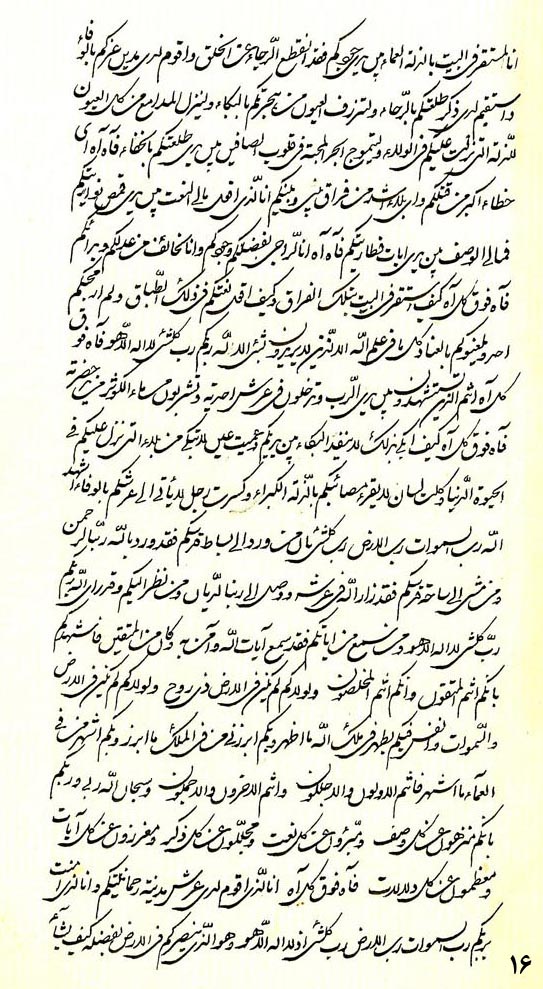 انا المستقر فی البیت بالذلة العماء بین یدی حبکم فقد انقطع الرجاء عن الخلق و اقوم لدی مدین عزکم بالوفاء
و استقیم لدی ذکر طلعتکم بالرجاء و لتزرف العیون من هجرکم بالبکاء و لینزل المدامع من کل العیون
للذلة التی نزلت علیکم فی الولاء و لیتموج ابحر المحبة فی قلوب الصافین بین یدی طلعتکم بالخفاء فآه آه ای
خطاء اکبر من قتلکم و ای بلاء اشد من فراق بینی و بینکم انا الذی اقل مالی النعت بین یدی قمص نورانیتکم
فمالی الوصف بین یدی ایات فطاریتکم فآه آه انا الراجی بفضلکم و جودکم و انا الخائف من عدلکم و برائکم
فآه فوق کل آه کیف استقر فی البیت بتلک الفراق و کیف اقل نعتکم فی ذلک الطباق و لم ار محبکم
احد و لیعنوکم بالعناد کل ما فی علم الله الا الذین لا یریدون بشئ الا لله ربکم رب کلشئ لا اله الا هو فآه فوق
کل آه انتم الذین تشهدون بین یدی الرب و تدخلون فی عرش احدیة و تشربون من ماء الکوثر من حضرته
فآه فوق کل آه کیف ابکی بذلک لا ینفد البکاء من بریکم و عمیت عین لا تبکی من بلاء التی نزل علیکم فی
الحیوة الدنیا و کلت لسان لا یقرء مصائبکم بالذلة الکبراء و کسرت رجل لا یأتی الی عرشکم بالوفاء اشهد
الله رب السموات رب الارض رب کلشئ بان من ورد الی بساط قربکم فقد ورد بالله ربنا الرحمن
و من مشی الی ساحة قربکم فقد زار الله فی عرشه و وصل الی ربنا الدیان و من نظر الیکم و قد رای الله ربکم
رب کلشئ لا اله الا هو و من سمع من ایاتکم فقد سمع آیات الله و آمن به و کان من المتقین فاشهدکم
بانکم انتم المتقون و انکم انتم المخلصون و لولاکم لم یکن فی الارض ذی روح و لولاکم لم یکن فی الارض
و السموات و انفس فبکم یظهر فی ملک الله ما اظهر و بکم ابرز نی من فی الملک ما ابرز و بکم اشهر من فی
العماء ما اشهر فانتم الاولون و الاجللون و انتم الاخرون و الاجملون و سبحان الله ربی و ربکم
بانکم منزهون عن کل وصف و مبرؤن عن کل نعت و مجللون عن کل ذکر و معززون عن کل آیات
و معظمون عن کل دلالات فآه فوق کل آه انا الذی اقوم لدی عرش مدینة رحمانیتکم و انا الذی امنت
بربکم رب السموات رب الارض رب کلشئ اذ لا اله الا هو و هو الذی ینصرکم فی الارض بفضله کیف یشآء
۱۶